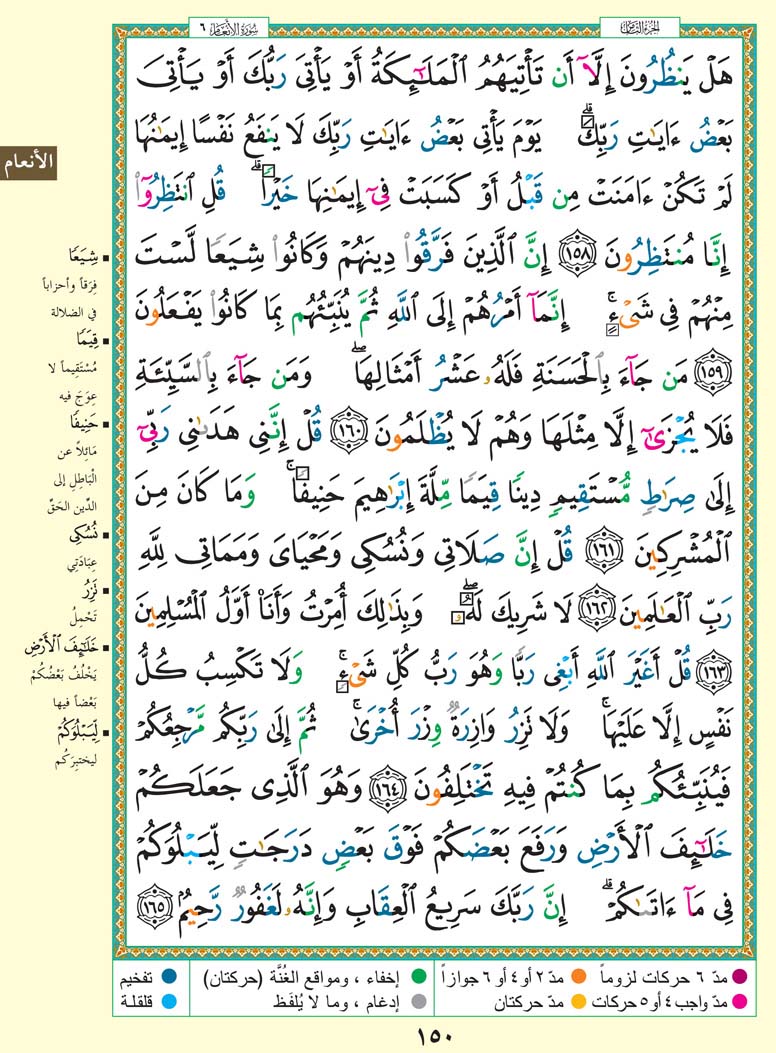 سُورَةُ الأَنْعَام ٦
الجُزْءُ الثَّامِنُ
هَلْ يَنظُرُونَ إِلَّآ أَن تَأْتِيَهُمُ ٱلْمَلَـٰٓئِكَةُ أَوْ يَأْتِىَ رَبُّكَ أَوْ يَأْتِىَ
بَعْضُ ءَايَـٰتِ رَبِّكَ ۗ يَوْمَ يَأْتِى بَعْضُ ءَايَـٰتِ رَبِّكَ لَا يَنفَعُ نَفْسًا إِيمَـٰنُهَا
لَمْ تَكُنْ ءَامَنَتْ مِن قَبْلُ أَوْ كَسَبَتْ فِىٓ إِيمَـٰنِهَا خَيْرًا ۗ قُلِ ٱنتَظِرُوٓا۟
إِنَّا مُنتَظِرُونَ ﴿١٥٨﴾ إِنَّ ٱلَّذِينَ فَرَّقُوا۟ دِينَهُمْ وَكَانُوا۟ شِيَعًا لَّسْتَ
مِنْهُمْ فِى شَىْءٍ ۚ إِنَّمَآ أَمْرُهُمْ إِلَى ٱللَّهِ ثُمَّ يُنَبِّئُهُم بِمَا كَانُوا۟ يَفْعَلُونَ
﴿١٥٩﴾ مَن جَآءَ بِٱلْحَسَنَةِ فَلَهُۥ عَشْرُ أَمْثَالِهَا ۖ وَمَن جَآءَ بِٱلسَّيِّئَةِ
فَلَا يُجْزَىٰٓ إِلَّا مِثْلَهَا وَهُمْ لَا يُظْلَمُونَ ﴿١٦٠﴾ قُلْ إِنَّنِى هَدَىٰنِى رَبِّىٓ
إِلَىٰ صِرَٰطٍ مُّسْتَقِيمٍ دِينًا قِيَمًا مِّلَّةَ إِبْرَٰهِيمَ حَنِيفًا ۚ وَمَا كَانَ مِنَ
ٱلْمُشْرِكِينَ ﴿١٦١﴾ قُلْ إِنَّ صَلَاتِى وَنُسُكِى وَمَحْيَاىَ وَمَمَاتِى لِلَّهِ
رَبِّ ٱلْعَـٰلَمِينَ ﴿١٦٢﴾ لَا شَرِيكَ لَهُۥ ۖ وَبِذَٰلِكَ أُمِرْتُ وَأَنَا۠ أَوَّلُ ٱلْمُسْلِمِينَ
﴿١٦٣﴾ قُلْ أَغَيْرَ ٱللَّهِ أَبْغِى رَبًّا وَهُوَ رَبُّ كُلِّ شَىْءٍ ۚ وَلَا تَكْسِبُ كُلُّ
نَفْسٍ إِلَّا عَلَيْهَا ۚ وَلَا تَزِرُ وَازِرَةٌ وِزْرَ أُخْرَىٰ ۚ ثُمَّ إِلَىٰ رَبِّكُم مَّرْجِعُكُمْ
فَيُنَبِّئُكُم بِمَا كُنتُمْ فِيهِ تَخْتَلِفُونَ ﴿١٦٤﴾ وَهُوَ ٱلَّذِى جَعَلَكُمْ
خَلَـٰٓئِفَ ٱلْأَرْضِ وَرَفَعَ بَعْضَكُمْ فَوْقَ بَعْضٍ دَرَجَـٰتٍ لِّيَبْلُوَكُمْ
فِى مَآ ءَاتَىٰكُمْ ۗ إِنَّ رَبَّكَ سَرِيعُ ٱلْعِقَابِ وَإِنَّهُۥ لَغَفُورٌ رَّحِيمٌ ﴿١٦٥﴾
الأنعام
▪ شِيَعًا
فِرَقاً وأحزاباً
في الضلالة
▪ قِيَمًا
مُسْتَقِيماً لا
عِوَجَ فيه
▪ حَنِيفًا
مَائِلاً عن
الْبَاطِلِ إلى
الدِّين الحَقِّ
▪ نُسُكِى
عِبَادَتِي
▪ تَزِرُ
تَحْمِلُ
▪ خَلَـٰٓئِفَ ٱلْأَرْضِ
يَخْلُفُ بَعْضُكُمْ
بَعْضاً فيها
▪ لِّيَبْلُوَكُمْ
ليختبِرَكُم
مدّ ٦ حركات لزوماً
مدّ ٢ أو ٤ أو ٦ جوازاً
إخفاء ، ومواقع الغُنَّة (حركتان)
تفخيم
مدّ واجب ٤ أو ٥ حركات
مدّ حركتان
إدغام ، وما لا يُلفَظ
قلقلة
١٥٠